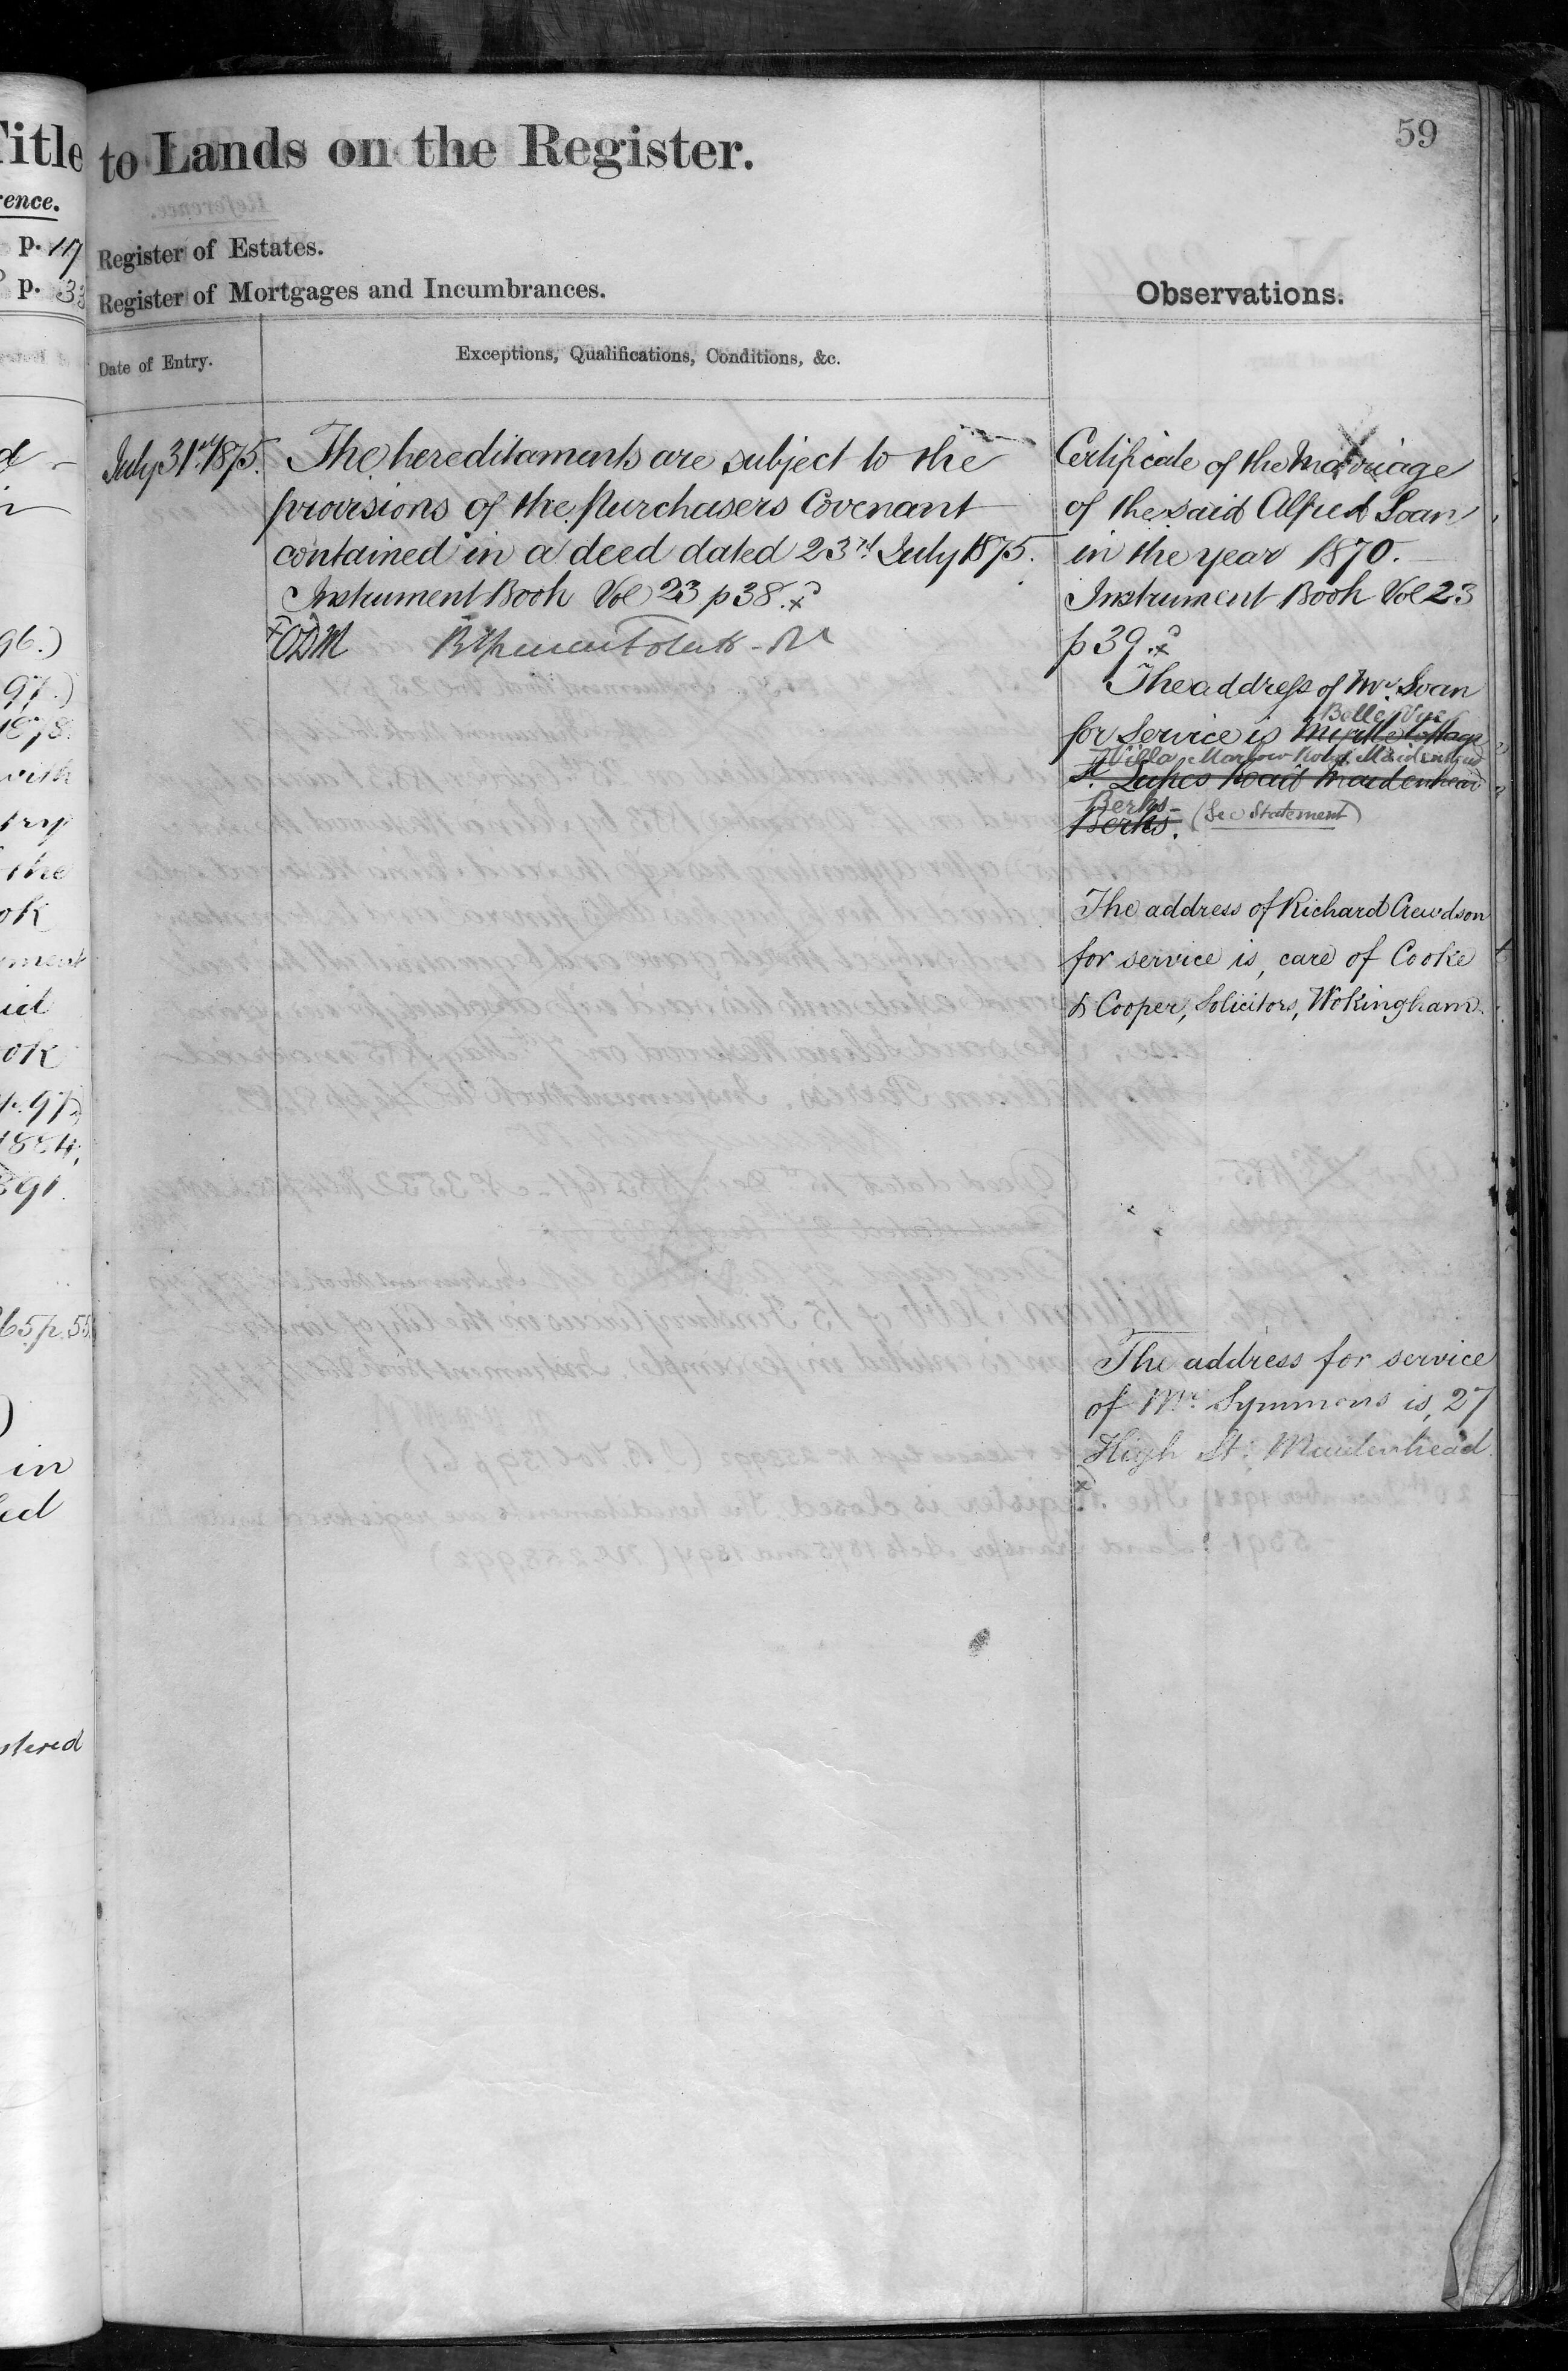 59
Title to Lands on the Register.
rence.
p. 117 Register of Estates.
p. 33 Register of Mortgages and Incumbrances.
Observations.
Date of Entry.
Exceptions, Qualifications, Conditions, &c.
July 31st 1875.
The hereditaments are subject to the
provisions of the Purchasers Covenant
contained in a deed dated 23rd July 1875.
Instrument Book Vol 23 p 38.
ODM
Certificate of the Marriage
of the said Alfred Soan
in the year 1870.
Instrument Book Vol 23
p 39.
The address of Mr. Soan
Belle Vue
for Service is Myrtle Cottage
Villa Marlow Road Maidenhead
St. Lukes Road Maidenhead
Berks
Berks. (See Statement)
The address of Richard Crewdson
for service is, care of Cooke
& Cooper, Solicitors, Wokingham.
The address for service
of Mr. Symmons is, 27
High St. Maidenhead.
96.)
97.)
1878.
with
the
ok
ment
id
ok
p. 97)
1884.
891.
65 p. 55
in
stered